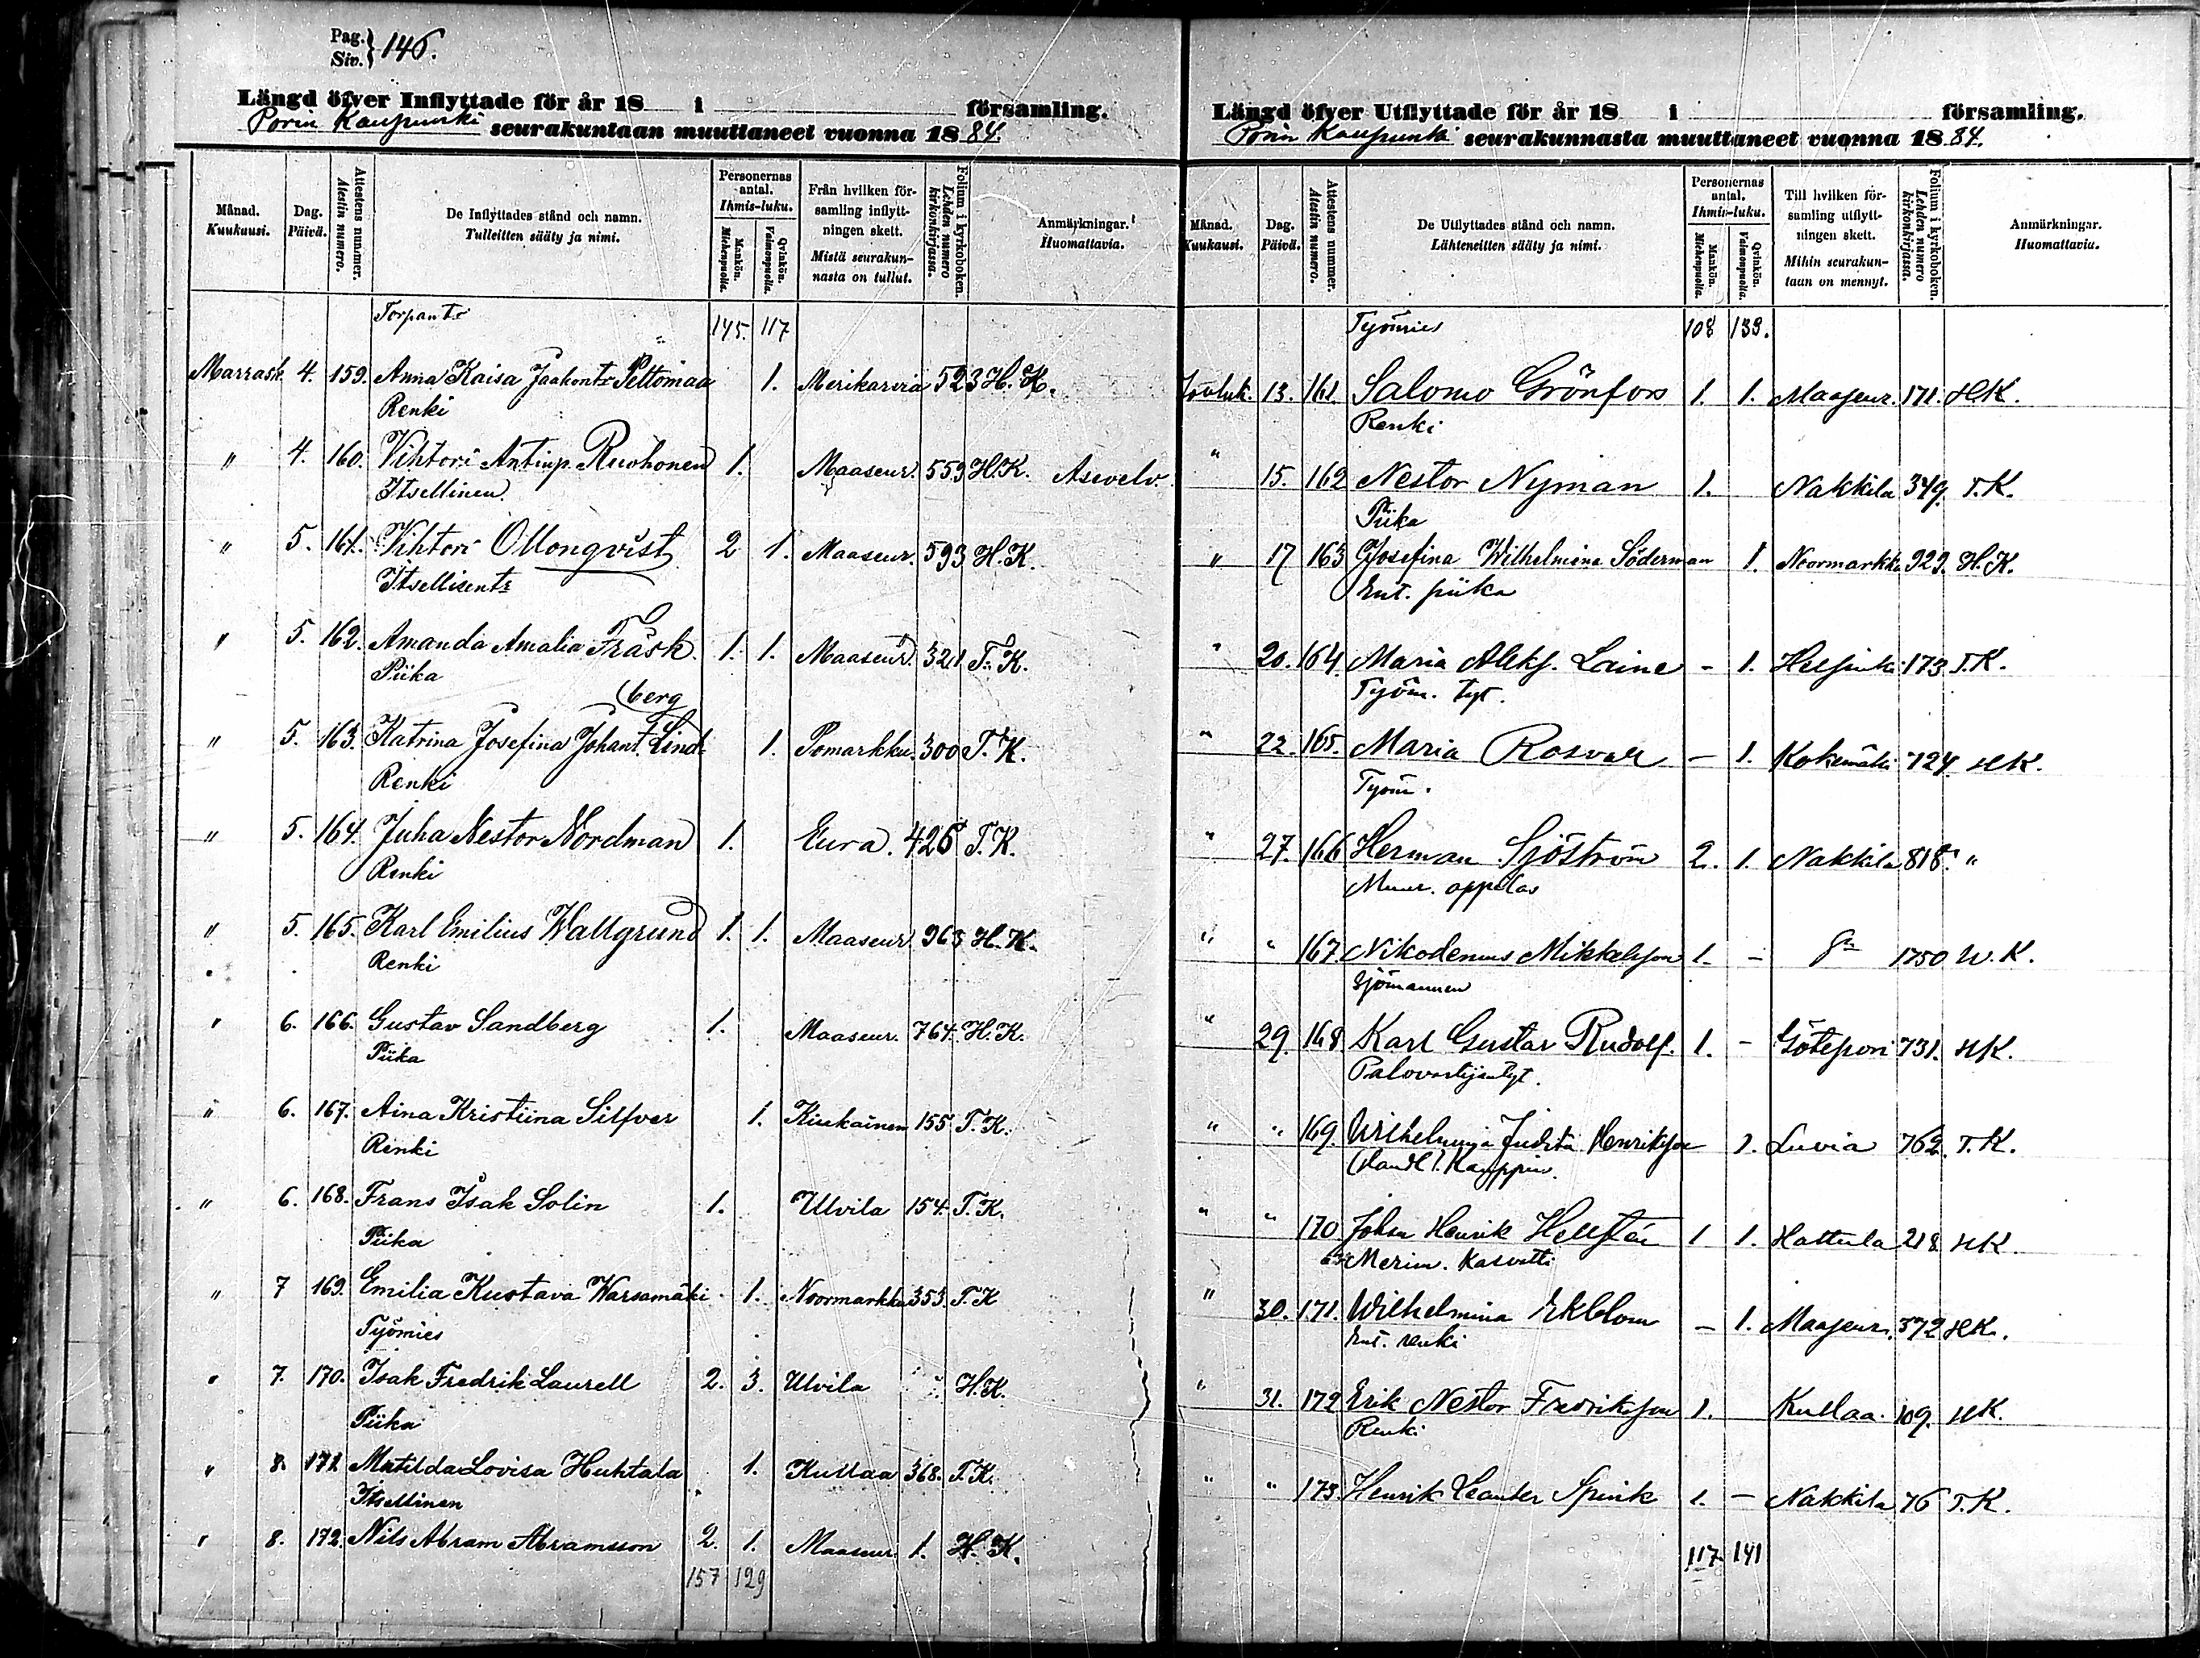 Pag. 146.
Siv.
Längd öfver Inflyttade för år 18 i församling.
Porin Kaupunki seurakuntaan muuttaneet vuonna 1884.
Månad. Kuukausi. Dag. Päivä. Attestens nummer. Atestin numero. De Inflyttades stånd och namn. Tulleitten sääty ja nimi. Personernas antal. Ihmis-luku. Mankön. Miehenpuolia. Qvinkön. Vaimonpuolia. Från hvilken församling inflyttningen skett. Mistä seurakunnasta on tullut. Folium i kyrkoboken. Lehden numero kirkonkirjassa. Anmärkningar. Huomattavia.
Torpantr 145. 117
Marrask. 4. 159. Anna Kaisa Jaakontr Peltomaa 1. Merikarvia 523 H. K.
Renki
" 4. 160. Vihtori Antinp. Ruohonen 1. Maaseur. 559 H.K. Asevelv.
Itsellinen.
" 5. 161. Vihtori Ollonqvist 2 1. Maaseur. 593 H.K.
Itsellisentr
" 5. 162. Amanda Amalia Fräsk. 1. 1. Maaseur. 321 T. K.
Piika
(berg
" 5. 163. Katrina Josefina Johant. Lind- 1. Pomarkku. 300 T. K.
Renki
" 5. 164. Juha Nestor Nordman 1. Eura. 426 T. K.
Renki
" 5. 165. Karl Emilius Wallgrund 1. 1. Maaseur. 963 H. K.
Renki
" 6. 166. Gustav Sandberg 1. Maaseur. 764. H. K.
Piika
" 6. 167. Aina Kristiina Silfver 1. Kiukainen 155 T. K.
Renki
" 6. 168. Frans Isak Solin 1. Ulvila 154. T. K.
Piika
" 7 169. Emilia Kustava Warsamäki 1. Noormarkku 353. T. K
Työmies
" 7. 170. Isak Fredrik Laurell 2. 3. Ulvila H.K.
Piika
" 8. 171. Matilda Lovisa Huhtala 1. Kullaa 368. T. K.
Itsellinen
" 8. 172. Nils Abram Abramsson 2. 1. Maaseur. 1. H. K.
157 129
Längd öfver Utflyttade för år 18 i församling.
Porin Kaupunki seurakunnasta muuttaneet vuonna 1884.
Månad. Kuukausi. Dag. Päivä. Attestens nummer. Atestin numero. De Utflyttades stånd och namn. Lähteneitten sääty ja nimi. Personernas antal. Ihmis-luku. Mankön. Miehenpuolia. Qvinkön. Vaimonpuolia. Till hvilken församling utflyttningen skett. Mihin seurakuntaan on mennyt. Folium i kyrkoboken. Lehden numero kirkonkirjassa. Anmärkningar. Huomattavia.
Työmies 108 139.
Jouluk. 13. 161. Salomo Grönfors 1. 1. Maaseur. 171. HK.
Renki
" 15. 162 Nestor Nyman 1. Nakkila 349. T. K.
Piika
" 17 163 Josefina Wilhelmina Söderman 1. Noormarkku 929. H. K.
Ent. piika
" 20. 164. Maria Aleks. Laine - 1. Helsinki 173 T. K.
Työm. tyt.
" 22. 165. Maria Rosvall - 1. Kokemäki 724 HK.
Työm.
" 27. 166 Herman Sjöström 2. 1. Nakkila 818. "
Muur. oppilas
" " 167. Nikodemus Mikkelsson 1. - 1750 U. K.
Sjömannen
" 29. 168. Karl Gustav Rudolf. 1. - Götepori 731. HK.
" " 169. Wilhelmina Judita Henriksson 1. Luvia 762. T. K.
" " 170 Johan Henrik Hellstén 1 1. Hattula 218 HK
Merim. Kasvatti
" 30. 171. Wilhelmina Ekblom - 1. Maaseur. 372 HK.
Ent. renki
" 31. 172 Erik Nestor Fredriksson 1. Kullaa. 109. HK.
Renki
" " 173. Henrik Leander Spink 1. - Nakkila 76 T. K.
117. 141